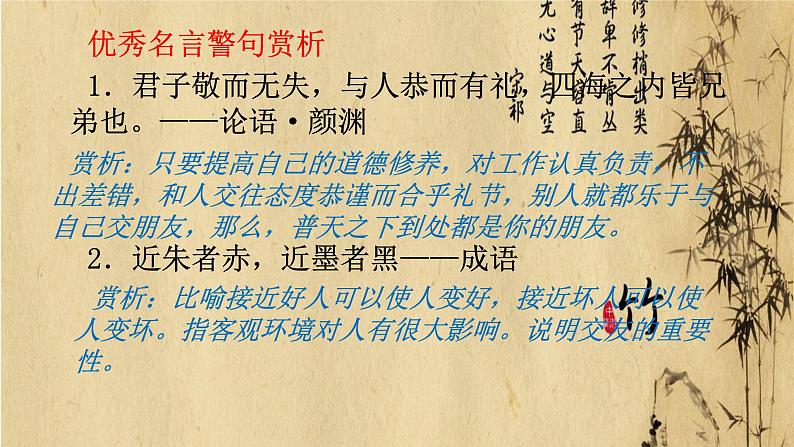 优秀名言警句赏析
1．君子敬而无失，与人恭而有礼，四海之内皆兄
弟也。——论语·颜渊
赏析：只要提高自己的道德修养，对工作认真负责，不
出差错，和人交往态度恭谨而合乎礼节，别人就都乐于与
自己交朋友，那么，普天之下到处都是你的朋友。
2．近朱者赤，近墨者黑——成语
赏析：比喻接近好人可以使人变好，接近坏人可以使
人变坏。指客观环境对人有很大影响。说明交友的重要
性。
修修梢出类
辞卑不肯丛
有节天容直
无心道与空
宋祁
竹